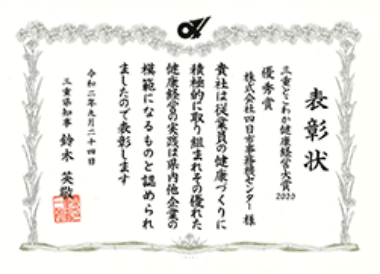 表彰状
三重とこわか健康経営大賞2020
優秀賞
株式会社四日市事務機センター 様
貴社は従業員の健康づくりに
積極的に取り組まれその優れた
健康経営の実践は県内他企業の
模範になるものと認められ
ましたので表彰します
令和二年九月二十四日
三重県知事 鈴木 英敬